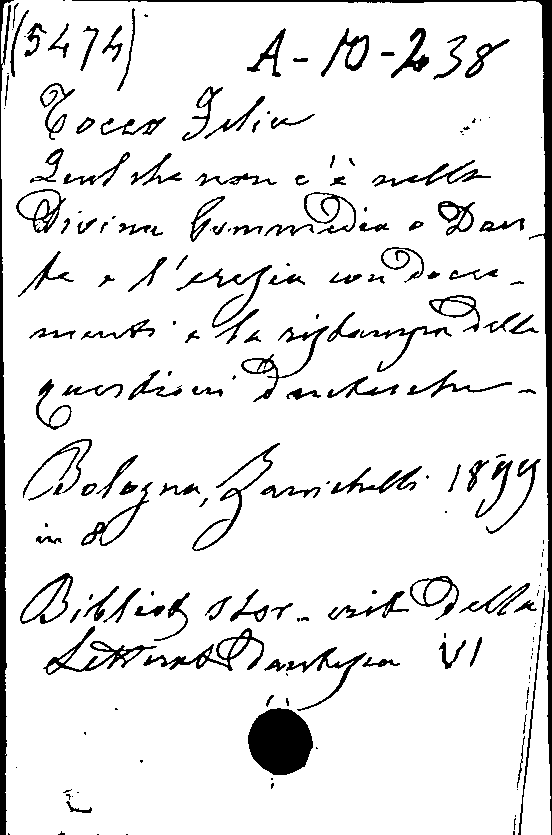 (5474)
A-10-238
Tocco Felice
Quel che non c'è nella
Divina Commedia o Dan-
te e l'eresia con docu-
menti e la ristampa delle
questioni dantesche -
Bologna, Zanichelli 1899
in 8
Bibliot stor- crit della
Letterat dantesca VI